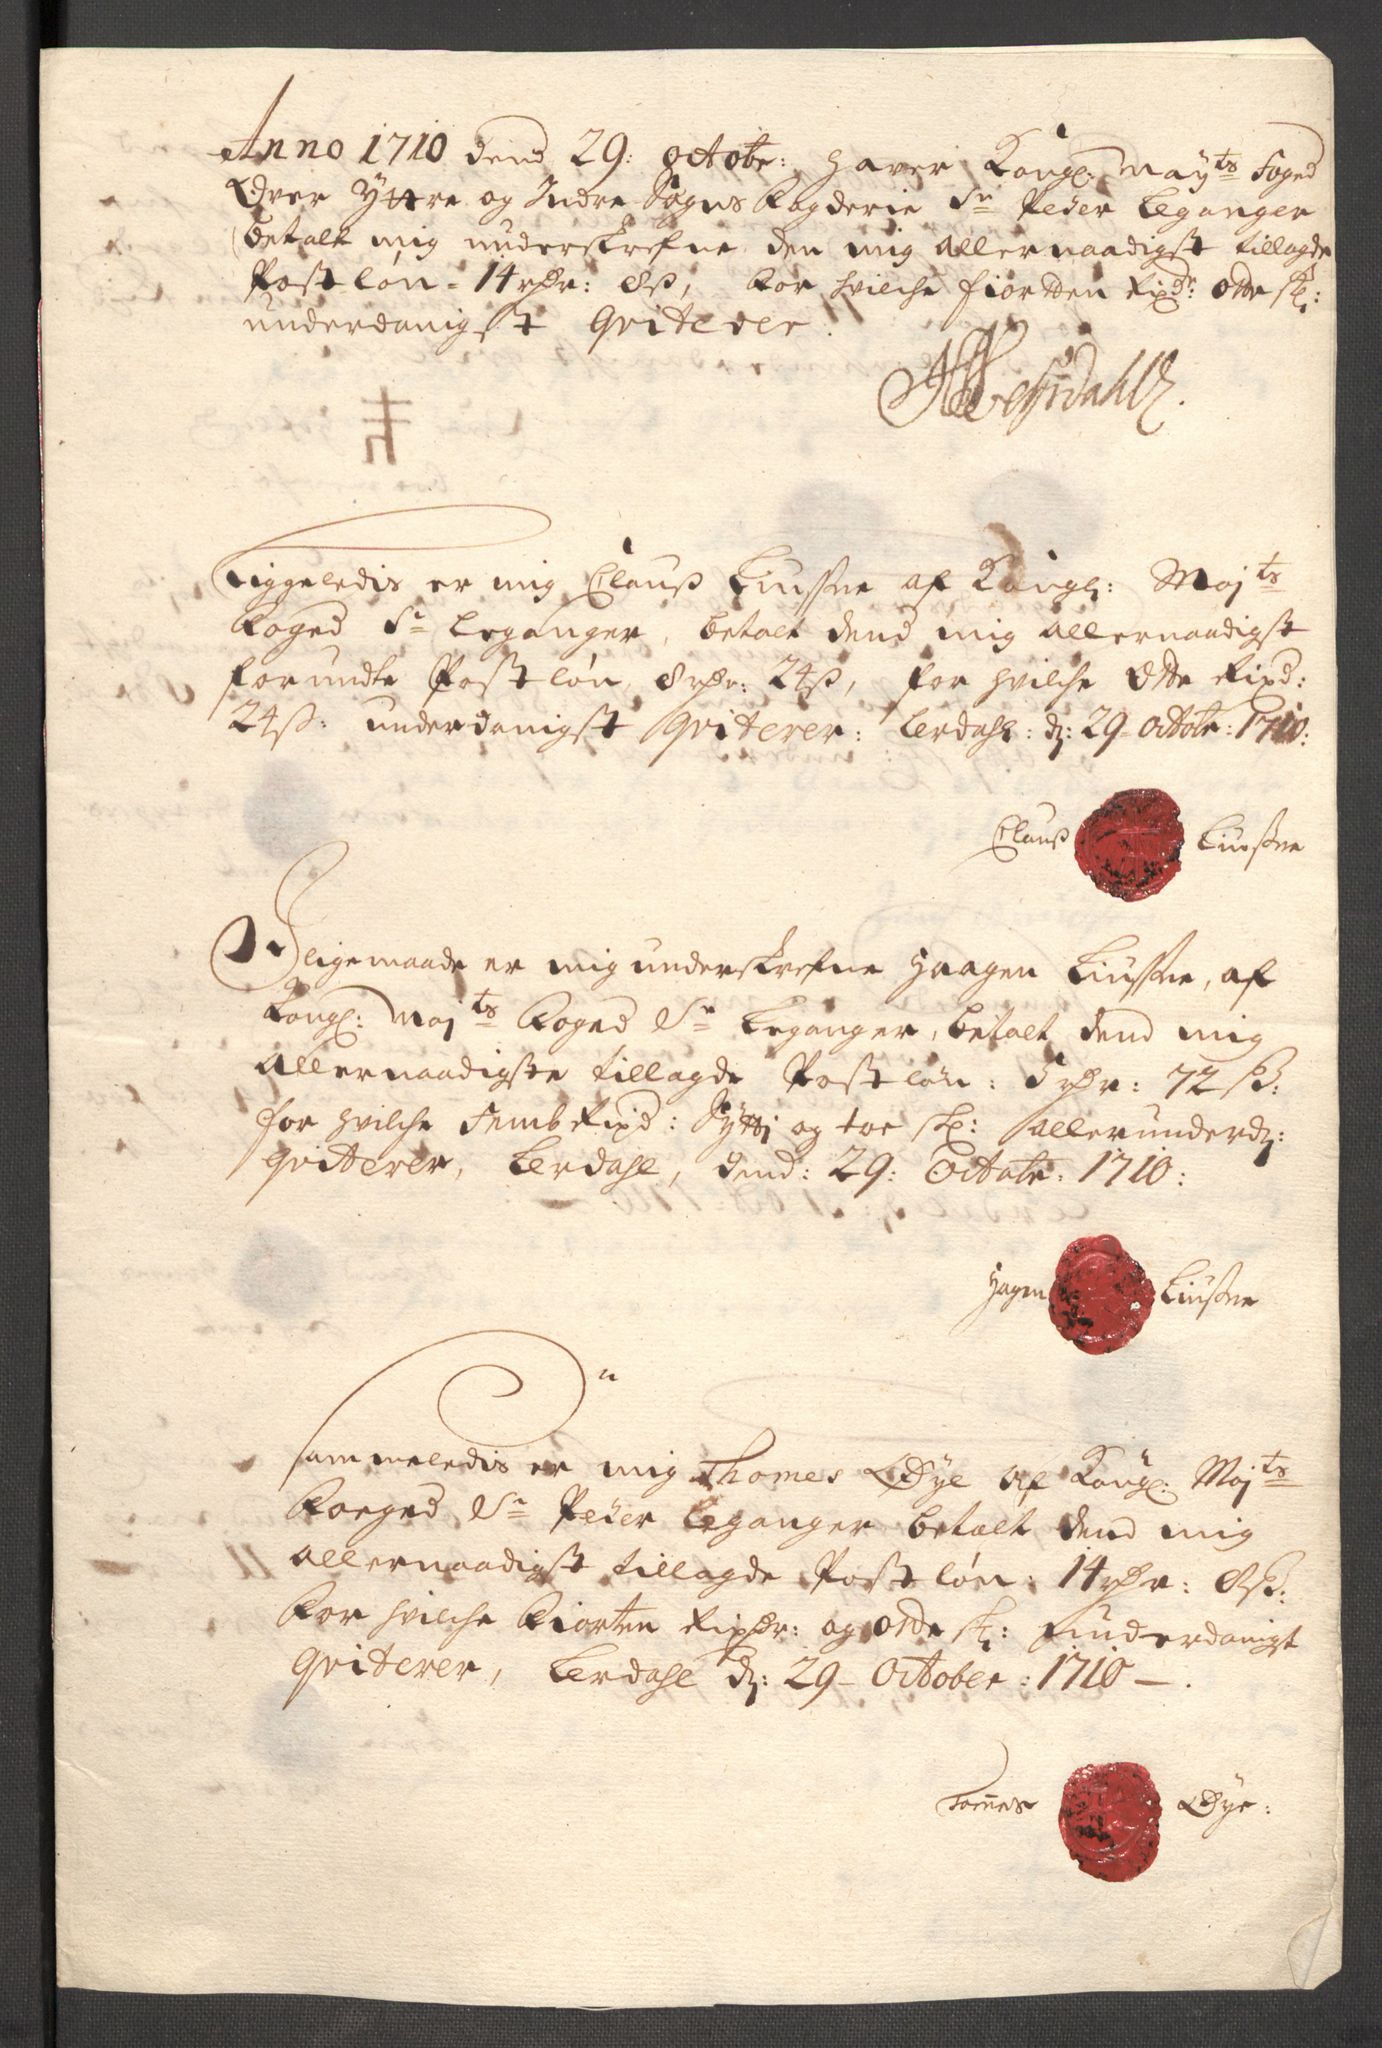 Anno 1710 dend 29: octobr: haver Kongl: Mayts Foged
Over Yttre og Indre Sogns Fogderie Sr Peder Leganger
betalt mig underskrefne den mig allernaadigst tillagde
Postløn - 14 rdr: 8 ß, for hvilche fiortden rixdr: otte sk:
underdanigst qviterer.
Liggeledis er mig Clauß Liusne af Kongl: Majts
Foged Sr Leganger, betalt dend mig allernaadigst
forundte Postløn 8 rdr: 24 ß, for hvilche Otte Rixd:
24 ß: underdanigst qviterer: Lerdahl: d: 29 octobr: 1710:
Clauß Liusne
I ligemaade er mig underskrefne Haagen Liusne, af
Kongl: Majts Foged Sr Leganger, betalt dend mig
allernaadigste tillagde Postløn: 5 rdr: 72 sk:
for hvilche Femb Rixd: Sytti og toe sk: allerunderd:
qviterer, Lerdahl, dend: 29: Octobr: 1710:
Hagen Liusne
Sammeledis er mig Thomes Øye af Kongl: Majts
Foeged Sr Peder Leganger betalt dend mig
allernaadigst tillagde Postløn: 14 rdr: 8 sk:
For hvilche Fiorten Rixdr: og otte sk: underdanigst
qviterer, Lerdahl d: 29 - October: 1710 -.
Tomes Øye: